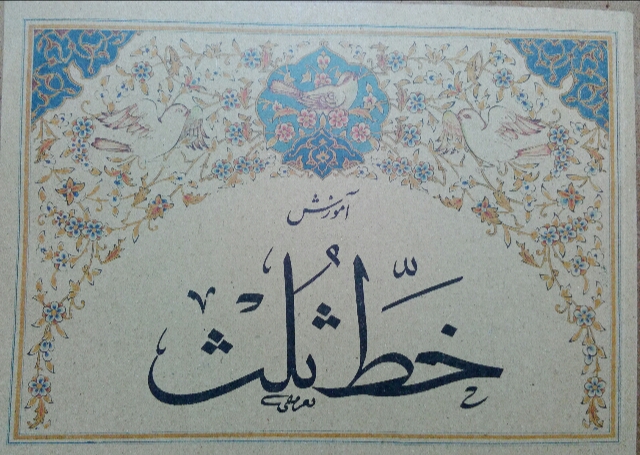 آموزش
خطّ ثلث